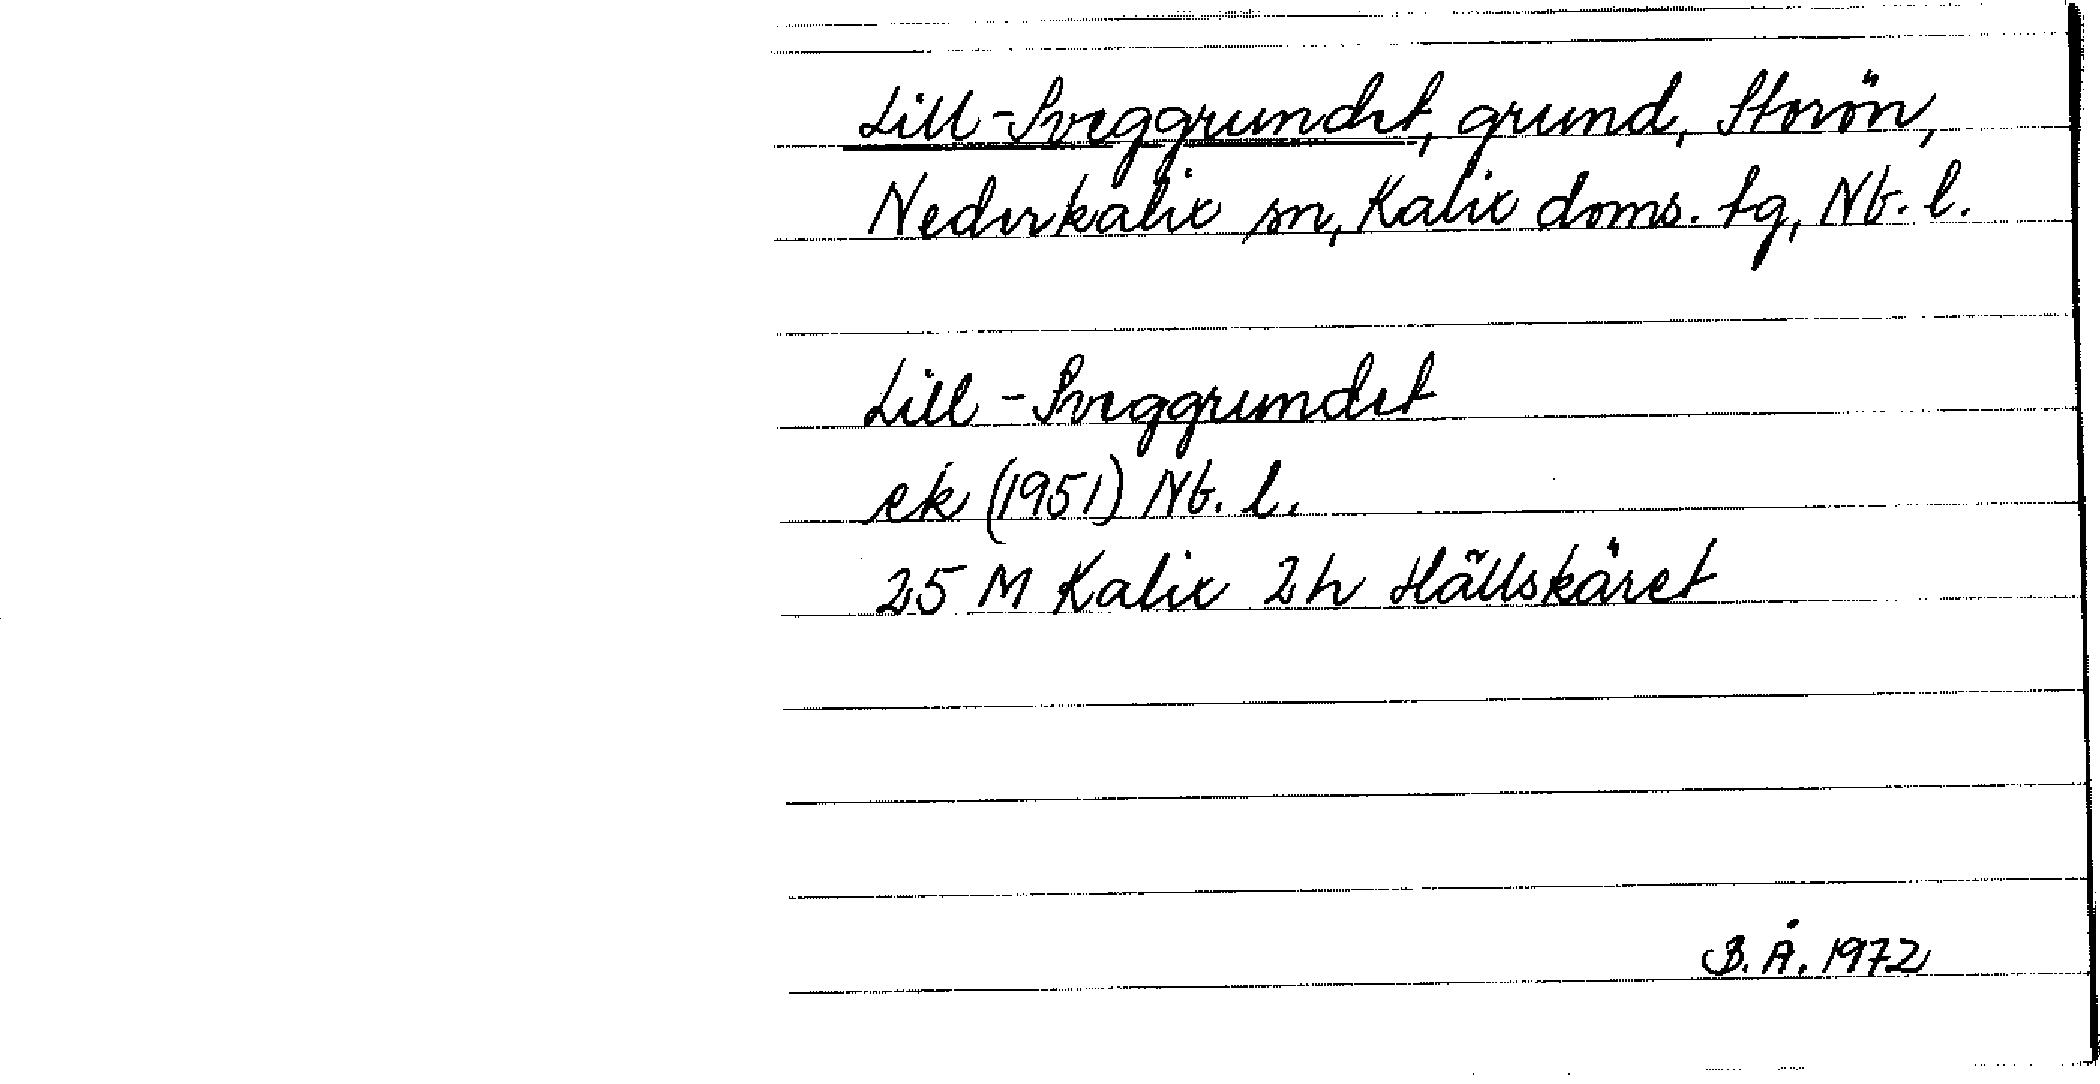 Lill-Sveggrundet, grund, Storön,
Nederkalix sn, Kalix doms. tg, Nb. l.
Lill-Sveggrundet
ek (1951) Nb. l.
25 M Kalix 2h Hällskäret
B. Å. 1972